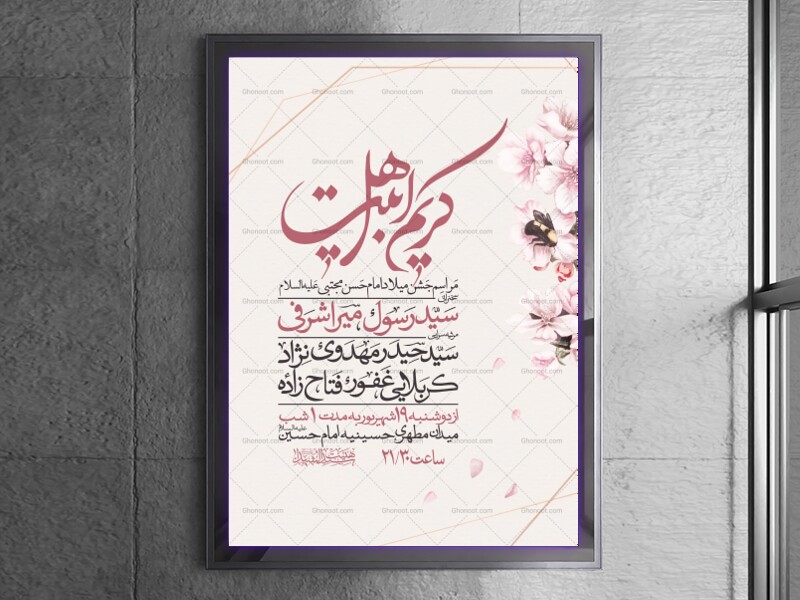 کریم اهل بیت
مراسم جشن میلاد امام حسن مجتبی علیه السلام
سخنرانی
سید رسول میراشرفی
مرثیه سرایی
سید حیدر مهدوی نژاد
کربلایی غفور فتاح زاده
از دوشنبه ۱۹ شهریور به مدت ۱ شب
میدان مطهری حسینیه امام حسین علیه السلام
ساعت ۲۱/۳۰
Ghonoot.com